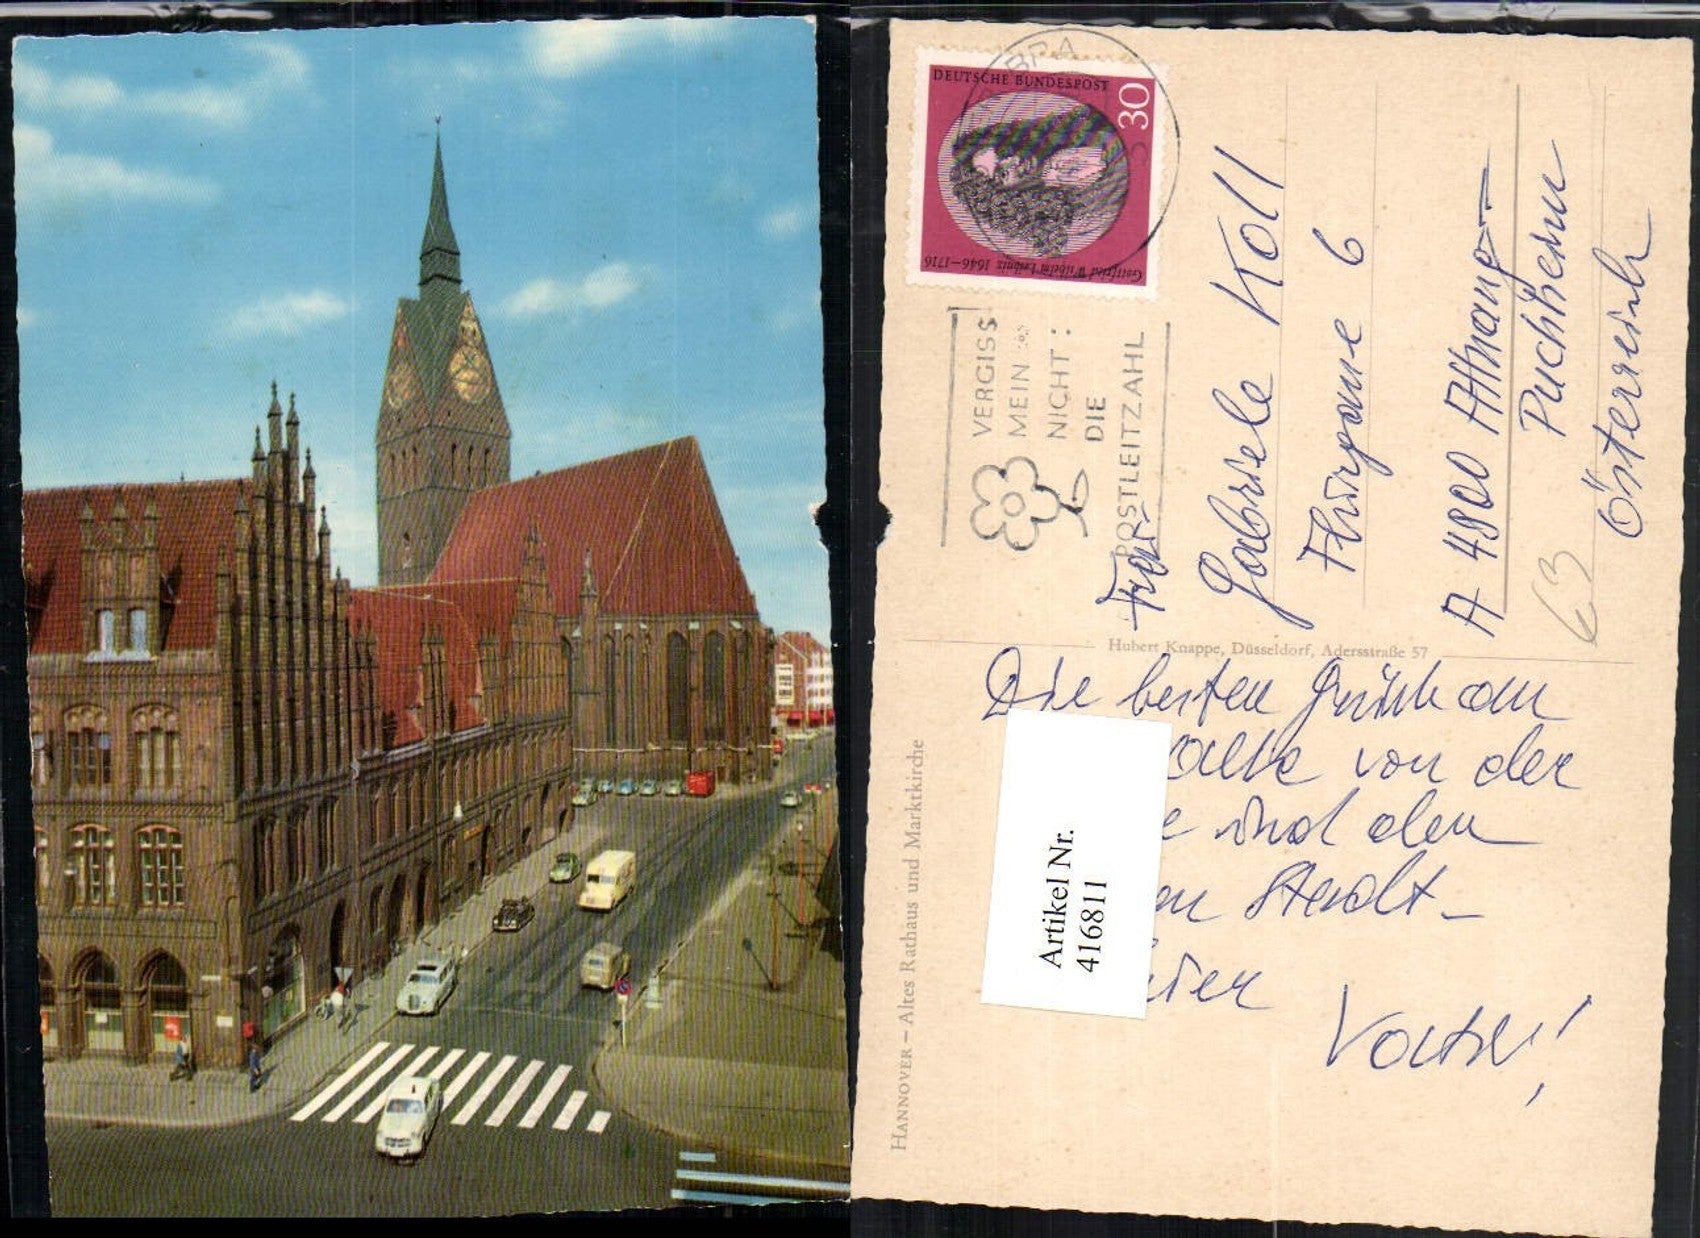 DEUTSCHE BUNDESPOST
30
Gottfried Wilhelm Leibniz 1646–1716
VERGISS
MEIN
NICHT:
DIE
POSTLEITZAHL
Frau
Gabriele Koll
Flurgasse 6
A 4800 Attnang-
Puchheim
Österreich
63
Hubert Knappe, Düsseldorf, Adersstraße 57
Die besten Grüße an
alle von der
und den
Stadt-
Vater!
Artikel Nr.
416811
HANNOVER – Altes Rathaus und Marktkirche